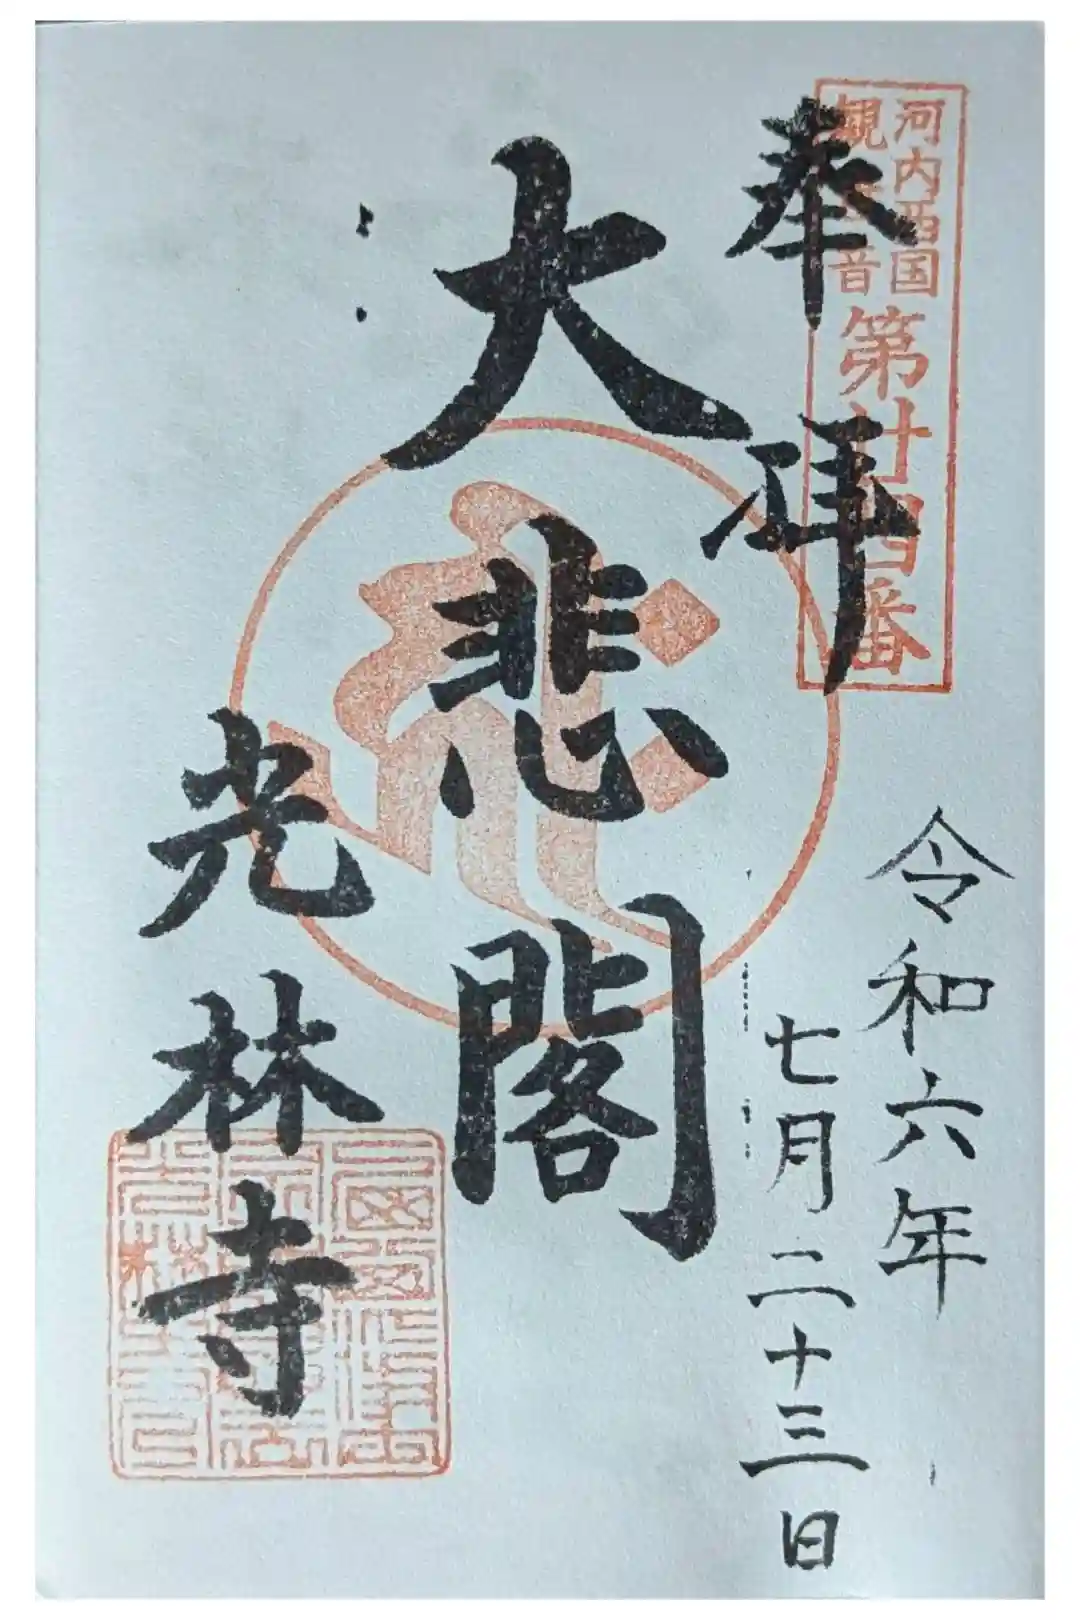 河内西国
観世音
第廿四番
奉拝
令和六年
七月二十三日
大悲閣
光林寺